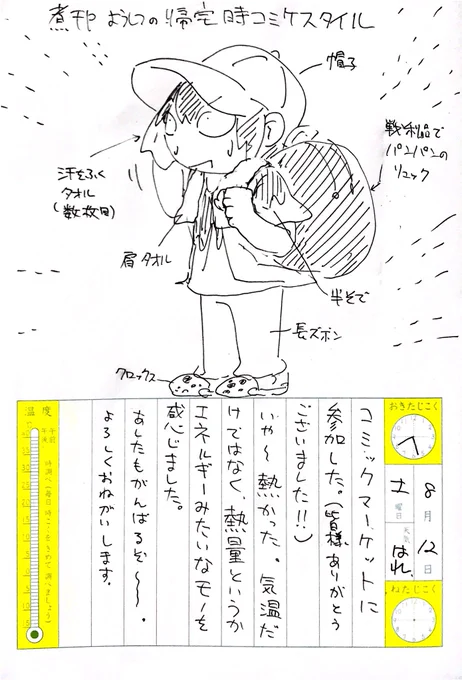 煮干ようしつの帰宅時コミケスタイル
帽子
戦利品で
パンパンの
リュック
汗をふく
タオル
(数枚目)
肩タオル
半そで
長ズボン
クロックス
おきたじこく
8月12日
土曜日
天気 はれ
ねたじこく
コミックマーケットに
参加した。(皆様、ありがとう
ございました!!)
いや〜熱かった。気温だ
けではなく、熱量というか
エネルギーみたいなモノを
感じました。
あしたもがんばるぞ〜〜。
よろしくおねがいします。
温度
午前
午後